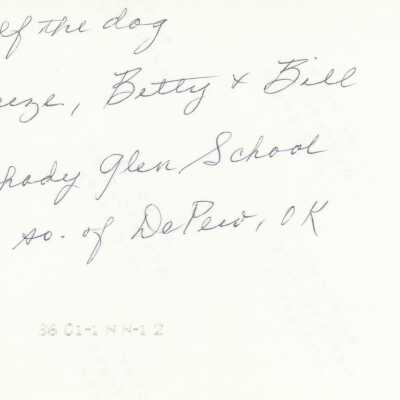 the dog
Betty + Bill
Glen School
so. of DePew, OK
86 01-1 N N-1 2